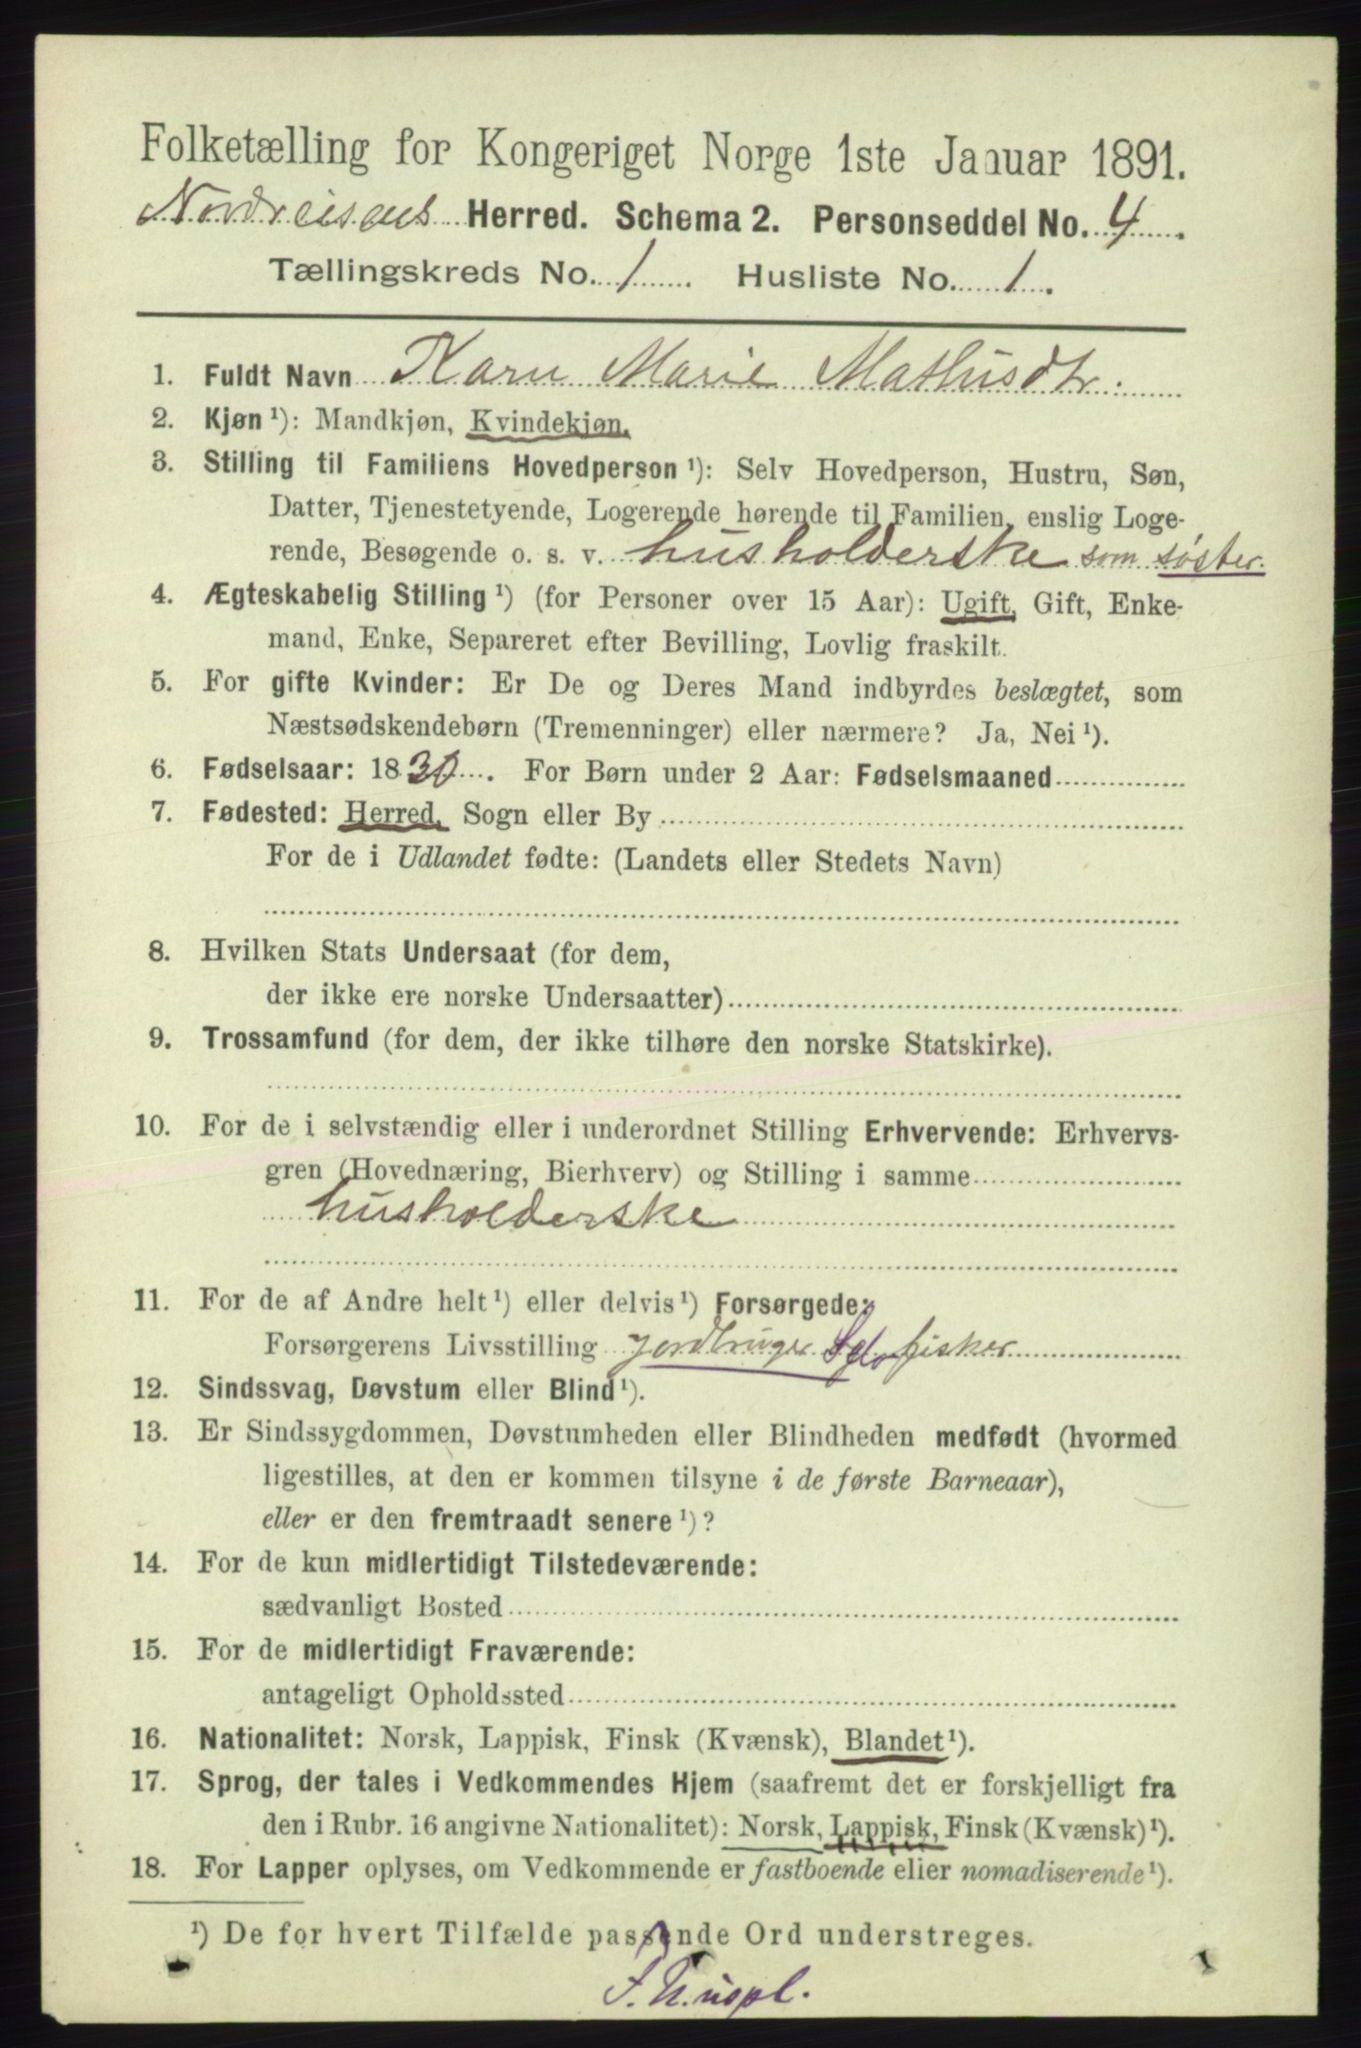 Folketælling for Kongeriget Norge 1ste Januar 1891.
Nordreisens Herred. Schema 2. Personseddel No. 4
Tællingskreds No. 1 Husliste No. 1.
1. Fuldt Navn Karn Marie Mathisdtr.
2. Kjøn ¹): Mandkjøn, Kvindekjøn.
3. Stilling til Familiens Hovedperson ¹): Selv Hovedperson, Hustru, Søn,
Datter, Tjenestetyende, Logerende hørende til Familien, enslig Loge-
rende, Besøgende o. s. v. husholderske som søster.
4. Ægteskabelig Stilling ¹) (for Personer over 15 Aar): Ugift, Gift, Enke-
mand, Enke, Separeret efter Bevilling, Lovlig fraskilt.
5. For gifte Kvinder: Er De og Deres Mand indbyrdes beslægtet, som
Næstsødskendebørn (Tremenninger) eller nærmere? Ja, Nei ¹).
6. Fødselsaar: 1830. For Børn under 2 Aar: Fødselsmaaned
7. Fødested: Herred, Sogn eller By
For de i Udlandet fødte: (Landets eller Stedets Navn)
8. Hvilken Stats Undersaat (for dem,
der ikke ere norske Undersaatter)
9. Trossamfund (for dem, der ikke tilhøre den norske Statskirke).
10. For de i selvstændig eller i underordnet Stilling Erhvervende: Erhvervs-
gren (Hovednæring, Bierhverv) og Stilling i samme
husholderske
11. For de af Andre helt ¹) eller delvis ¹) Forsørgede:
Forsørgerens Livsstilling jordbruger Selo fisker
12. Sindssvag, Døvstum eller Blind ¹).
13. Er Sindssygdommen, Døvstumheden eller Blindheden medfødt (hvormed
ligestilles, at den er kommen tilsyne i de første Barneaar),
eller er den fremtraadt senere ¹)?
14. For de kun midlertidigt Tilstedeværende:
sædvanligt Bosted
15. For de midlertidigt Fraværende:
antageligt Opholdssted
16. Nationalitet: Norsk, Lappisk, Finsk (Kvænsk), Blandet ¹).
17. Sprog, der tales i Vedkommendes Hjem (saafremt det er forskjelligt fra
den i Rubr. 16 angivne Nationalitet): Norsk, Lappisk, Finsk (Kvænsk) ¹).
18. For Lapper oplyses, om Vedkommende er fastboende eller nomadiserende ¹).
¹) De for hvert Tilfælde passende Ord understreges.